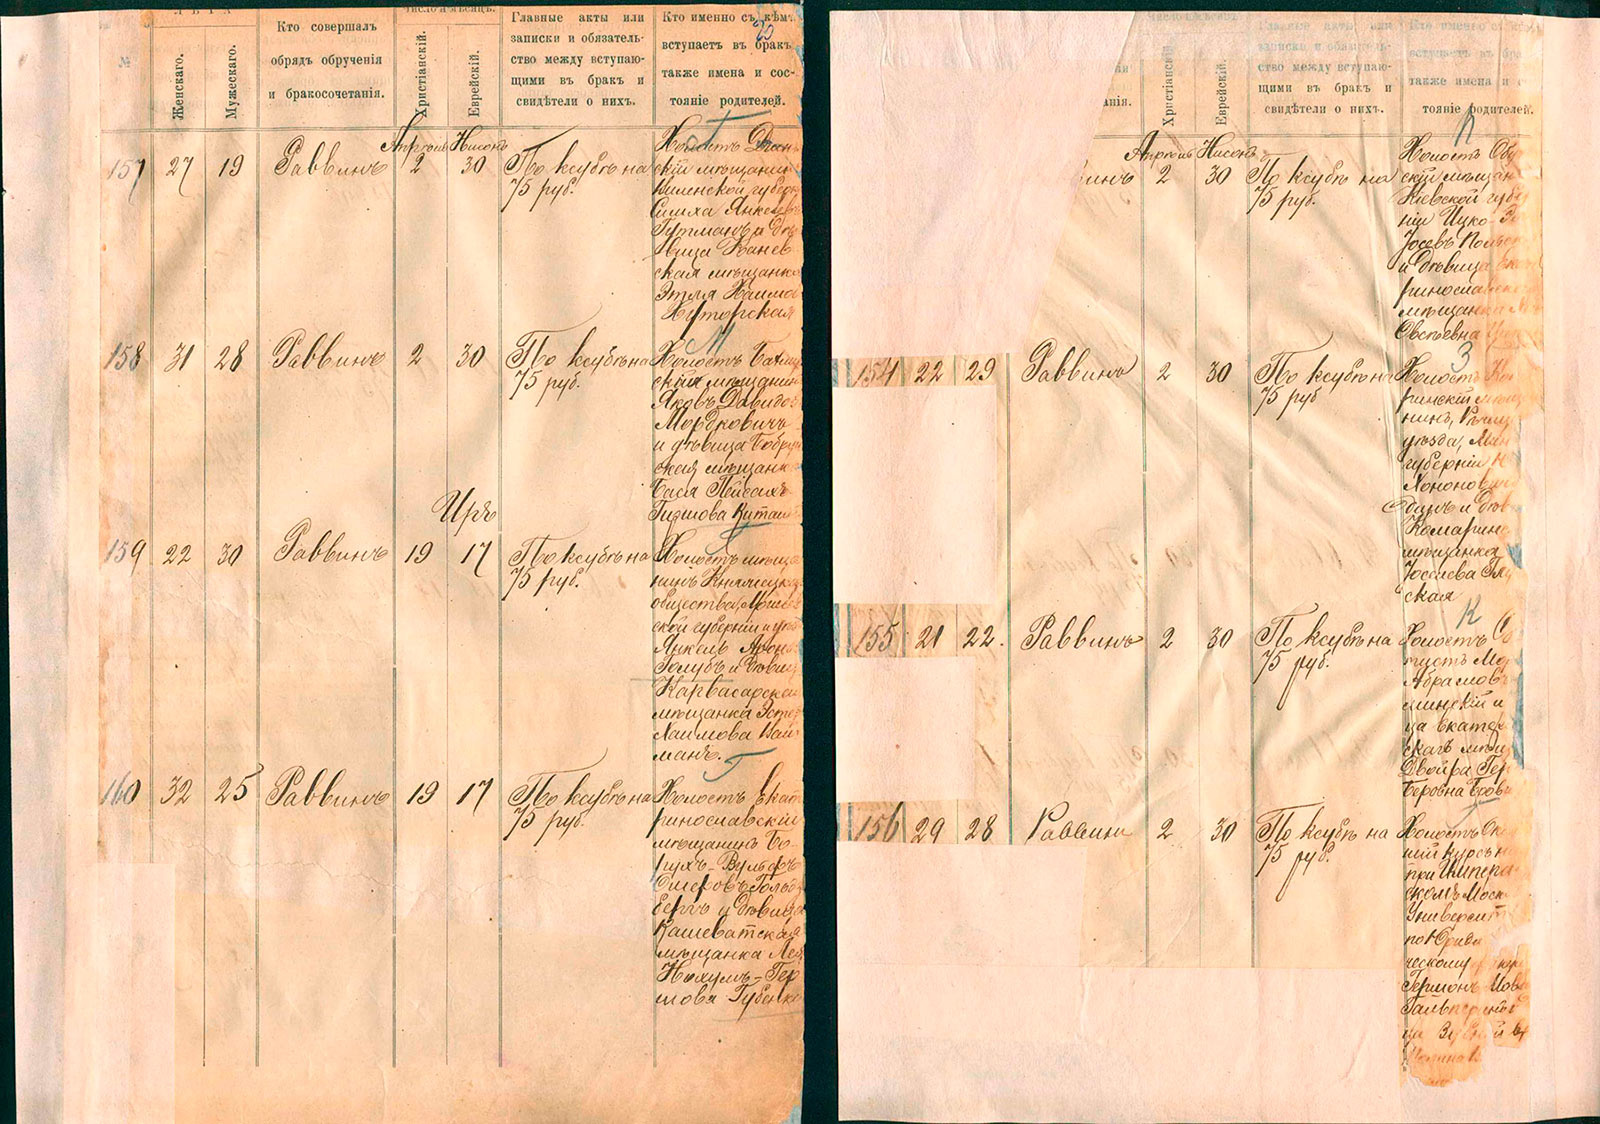 №
ЛѢТА
Женскаго.
Мужескаго.
Кто совершалъ
обрядъ обрученія
и бракосочетанія.
Число и мѣсяцъ.
Христіанскій.
Еврейскій.
Главные акты или
записки и обязатель-
ство между вступаю-
щими въ бракъ и
свидѣтели о нихъ.
Кто именно съ кѣмъ
вступаетъ въ бракъ,
также имена и сос-
тояніе родителей.
Апрель Нисонъ
157 27 19 Раввинъ 2 30 По ксубѣ на
75 руб.
Холостъ
скій мѣщанинъ
Виленской губерн
Симха Янкел
Гутманъ и дѣ
вица Канев
ская мѣщанка
Этля Хаимо
Хуторская
158 31 28 Раввинъ 2 30 По ксубѣ на
75 руб.
Холостъ Бахму
скій мѣщанин
Яковъ Давидо
Мордковичъ
и дѣвица Бобруй
ская мѣщанк
Бася Пейсахъ
Гиршова
Иръ
159 22 30 Раввинъ 19 17 По ксубѣ на
75 руб.
Холостъ мѣща
нинъ Княжецка
общества, Могилев
ской губерніи и уѣз
Янкель Арон
Голубъ и дѣвиц
Карвасарская
мѣщанка Эсте
Хаимова Вай
манъ.
160 32 25 Раввинъ 19 17 По ксубѣ на
75 руб.
Холостъ Екат
ринославскій
мѣщанинъ Бо
рухъ-Вульфъ
Омеровъ Гольд
бергъ и дѣвица
Кашеватская
мѣщанка Лея
Нахумъ-Гер
шова Губенко
анія.
Христіанскій
Еврейскій.
Главные акты или
записки и обязатель-
ство между вступаю-
щими въ бракъ и
свидѣтели о нихъ.
Кто именно съ кѣмъ
вступаетъ въ бра
также имена и с
тояніе родителей.
Апрель Нисонъ
винъ 2 30 По ксубѣ на
75 руб.
Холостъ Обу
скій мѣщан
Кіевской губер
ніи Ицко-
Іосевъ
и дѣвица Екате
ринославска
мѣщанка
Овсѣевна
154 22 29 Раввинъ 2 30 По ксубѣ на
75 руб
Холостъ
ринскій мѣщ
нинъ, Рѣчиц
уѣзда, Мин
губерніи
Хононови
данъ и дѣв
Комарино
мѣщанка
Іоселева
ская
155 21 22. Раввинъ 2 30 По ксубѣ на
75 руб.
Холостъ
тистъ Мор
Абрамовъ
минскій и
ца Екатер
скагъ мѣщ
Двойра Гер
Беровна
156 29 28 Раввинъ 2 30 По ксубѣ на
75 руб.
Холостъ Око
ній курсъ н
при Импера
скомъ Моск
Университ
по Юриди
ческому
Германъ Иов
Гальперинъ